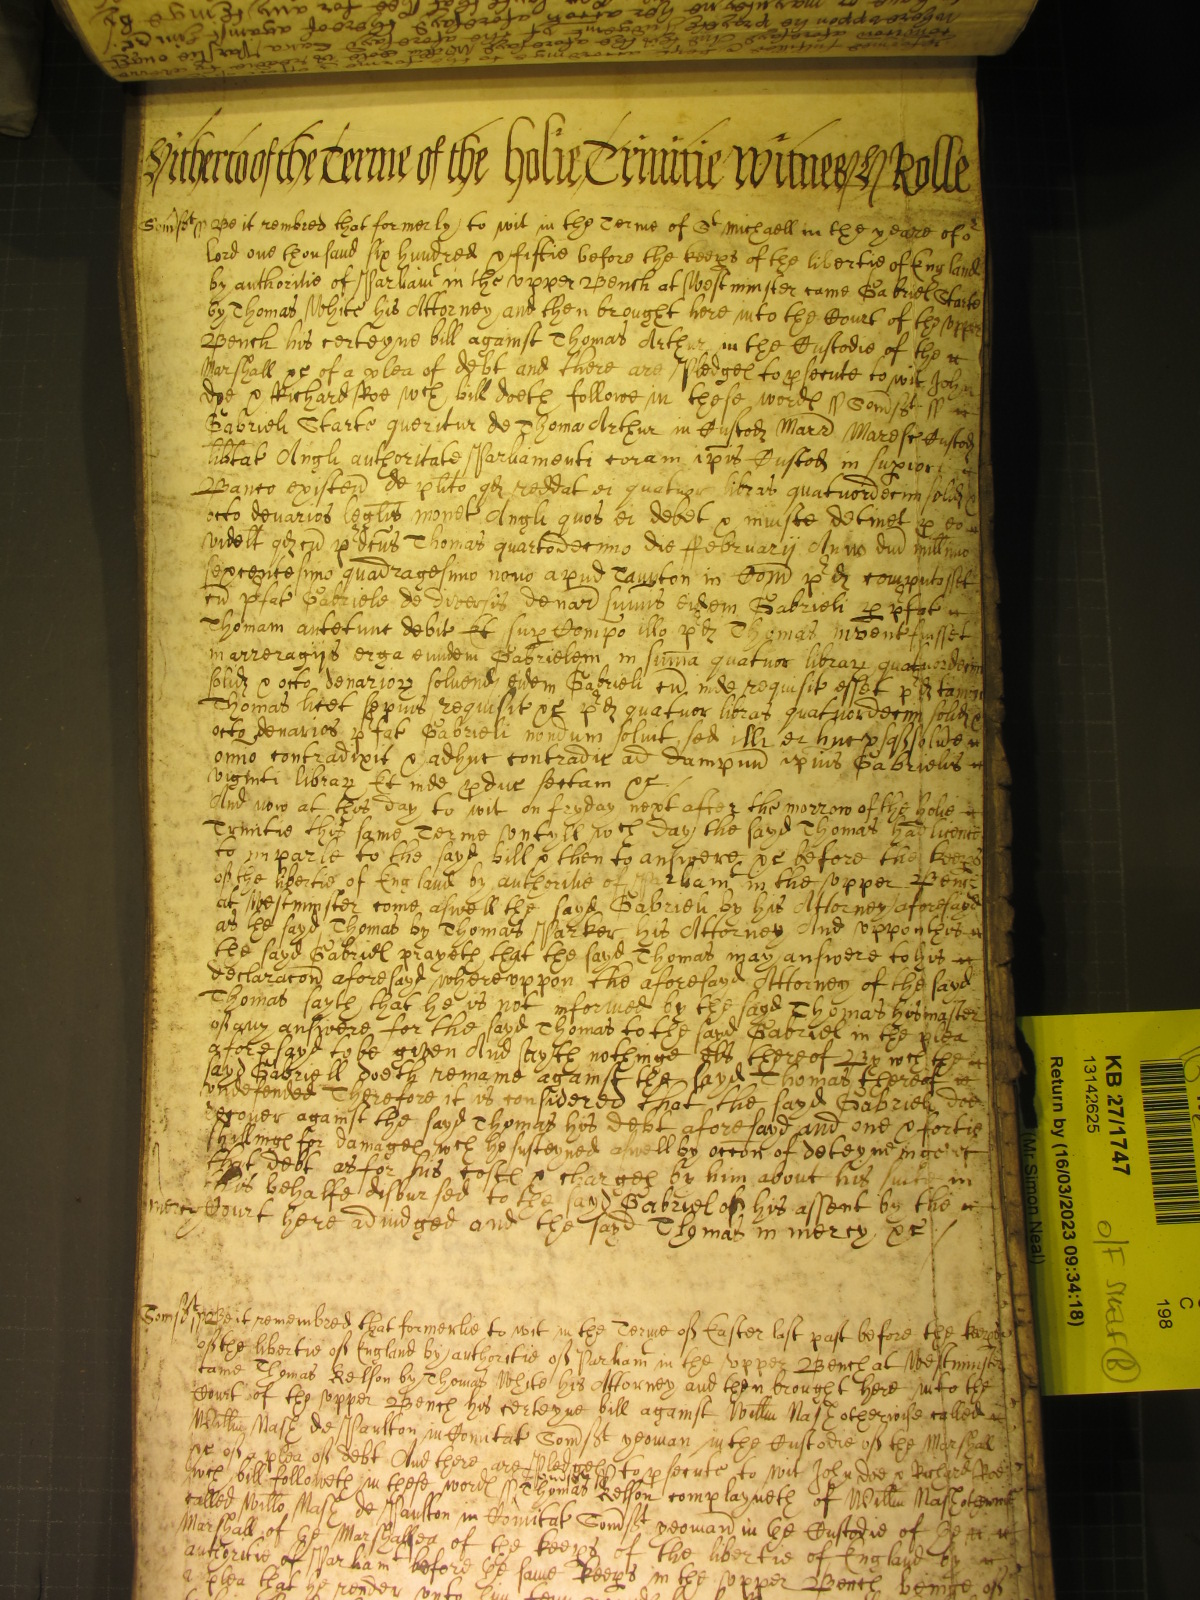 Hitherto of the Terme of the holie Trinitie Witnes H Rolle
Somsst ss Be it rembred that formerly to wit in the Terme of St Michaell in the yeare of or
lord one thousand six hundred & fiftie before the keeps of the libertie of England
by authoritie of Parliamt in the upper Bench at Westminster came Gabriell Starte
by Thomas White his Attorney and then brought here into the Court of the upper
Bench his certeyne bill against Thomas Arthur in the Custodie of the
Marshall &c of a plea of debt and there are Pledges to psecute to wit John
doe & Richard Roe wch bill doeth followe in these words ss Somsst ss
Gabriell Starte queritur de Thoma Arthur in Custod Marr Maresc Custod
libtat Angli authoritate Parliamenti coram ipis Custod in supiori
Banco existen de plito qd reddat ei quatuor libras quatuordecim solid &
octo denarios leglis monet Angli quos ei debet & iniuste detinet p eo
videlt qd cu pdcus Thomas quartodecimo die Februarij Anno dni millimo
sexcentesimo quadragesimo nono apud Taunton in Com pd computasset
cu pfat Gabriele de diversis denar sumis eidem Gabrieli p pfat
Thomam antetunc debit Et sup Compo illo pd Thomas invent fuisset
in arreragijs erga eundem Gabrielem in suma quatuor librar quatuordecim
solid & octo denarior solvend eidem Gabrieli cu inde requisit esset pd tamen
Thomas licet sepius requisit &c pd quatuor libras quatuordecim solid &
octo denarios pfat Gabrieli nondum solvit sed ill ei huc usq solvere
omno contradixit & adhuc contradic ad dampnu ipius Gabrielis
viginti librar Et inde pduc sectam &c
And now at this day to wit on fryday next after the morrow of the holie
Trinitie this same Terme untyll wch day the sayd Thomas had licence
to imparle to the sayd bill & then to answere &c before the keeps
of the libertie of England by authoritie of Parliamt in the upper Bench
at Westminster come aswell the sayd Gabriell by his Attorney aforesayd
as the sayd Thomas by Thomas Parker his Attorney And uppon this
the sayd Gabriel prayeth that the sayd Thomas may answere to his
declaracon aforesayd whereuppon the aforesayd Attorney of the sayd
Thomas sayth that he is not informed by the sayd Thomas his master
of any answere for the sayd Thomas to the sayd Gabriel in the plea
aforesayd to be given And sayth nothinge els thereof By wch the
sayd Gabriell doeth remaine against the sayd Thomas thereof
undefended Therefore it is considered that the sayd Gabriell doe
recover against the sayd Thomas his debt aforesayd and one & fortie
shillings for damages wch he susteyned aswell by occon of deteyninge
that debt as for his costs & charges by him about his suite in
this behalfe disbursed to the sayd Gabriel of his assent by the
mercy Court here adiudged and the sayd Thomas in mercy &c
Somsst ss Be it remembred that formerlie to wit in the Terme of Easter last past before the keeps
of the libertie of England by authoritie of Parliam in the upper Bench at Westminster
came Thomas Kelson by Thomas White his Attorney and then brought here into the
Court of the upper Bench his certeyne bill against Willm Nash otherwise called
Willm Nash de Paulton in Comitat Somsst yeoman in the Custodie of the Marshall
&c of a plea of debt And there are Pledges to psecute to wit John doe & Richard Roe
wch bill followeth in these words ss Somsst ss Thomas Kelson complayneth of Willm Nash otherwise
called Willm Nash de Paulton in Comitat Somsst yeoman in the Custodie of
Marshall of the Marshallsea of the keeps of the libertie of England by
authoritie of Parliam before the same keeps in the upper Bench beinge of
a plea that he render unto him
KB 27/1747
13142625
Return by (16/03/2023 09:34:18)
(Mr Simon Neal)
C
198